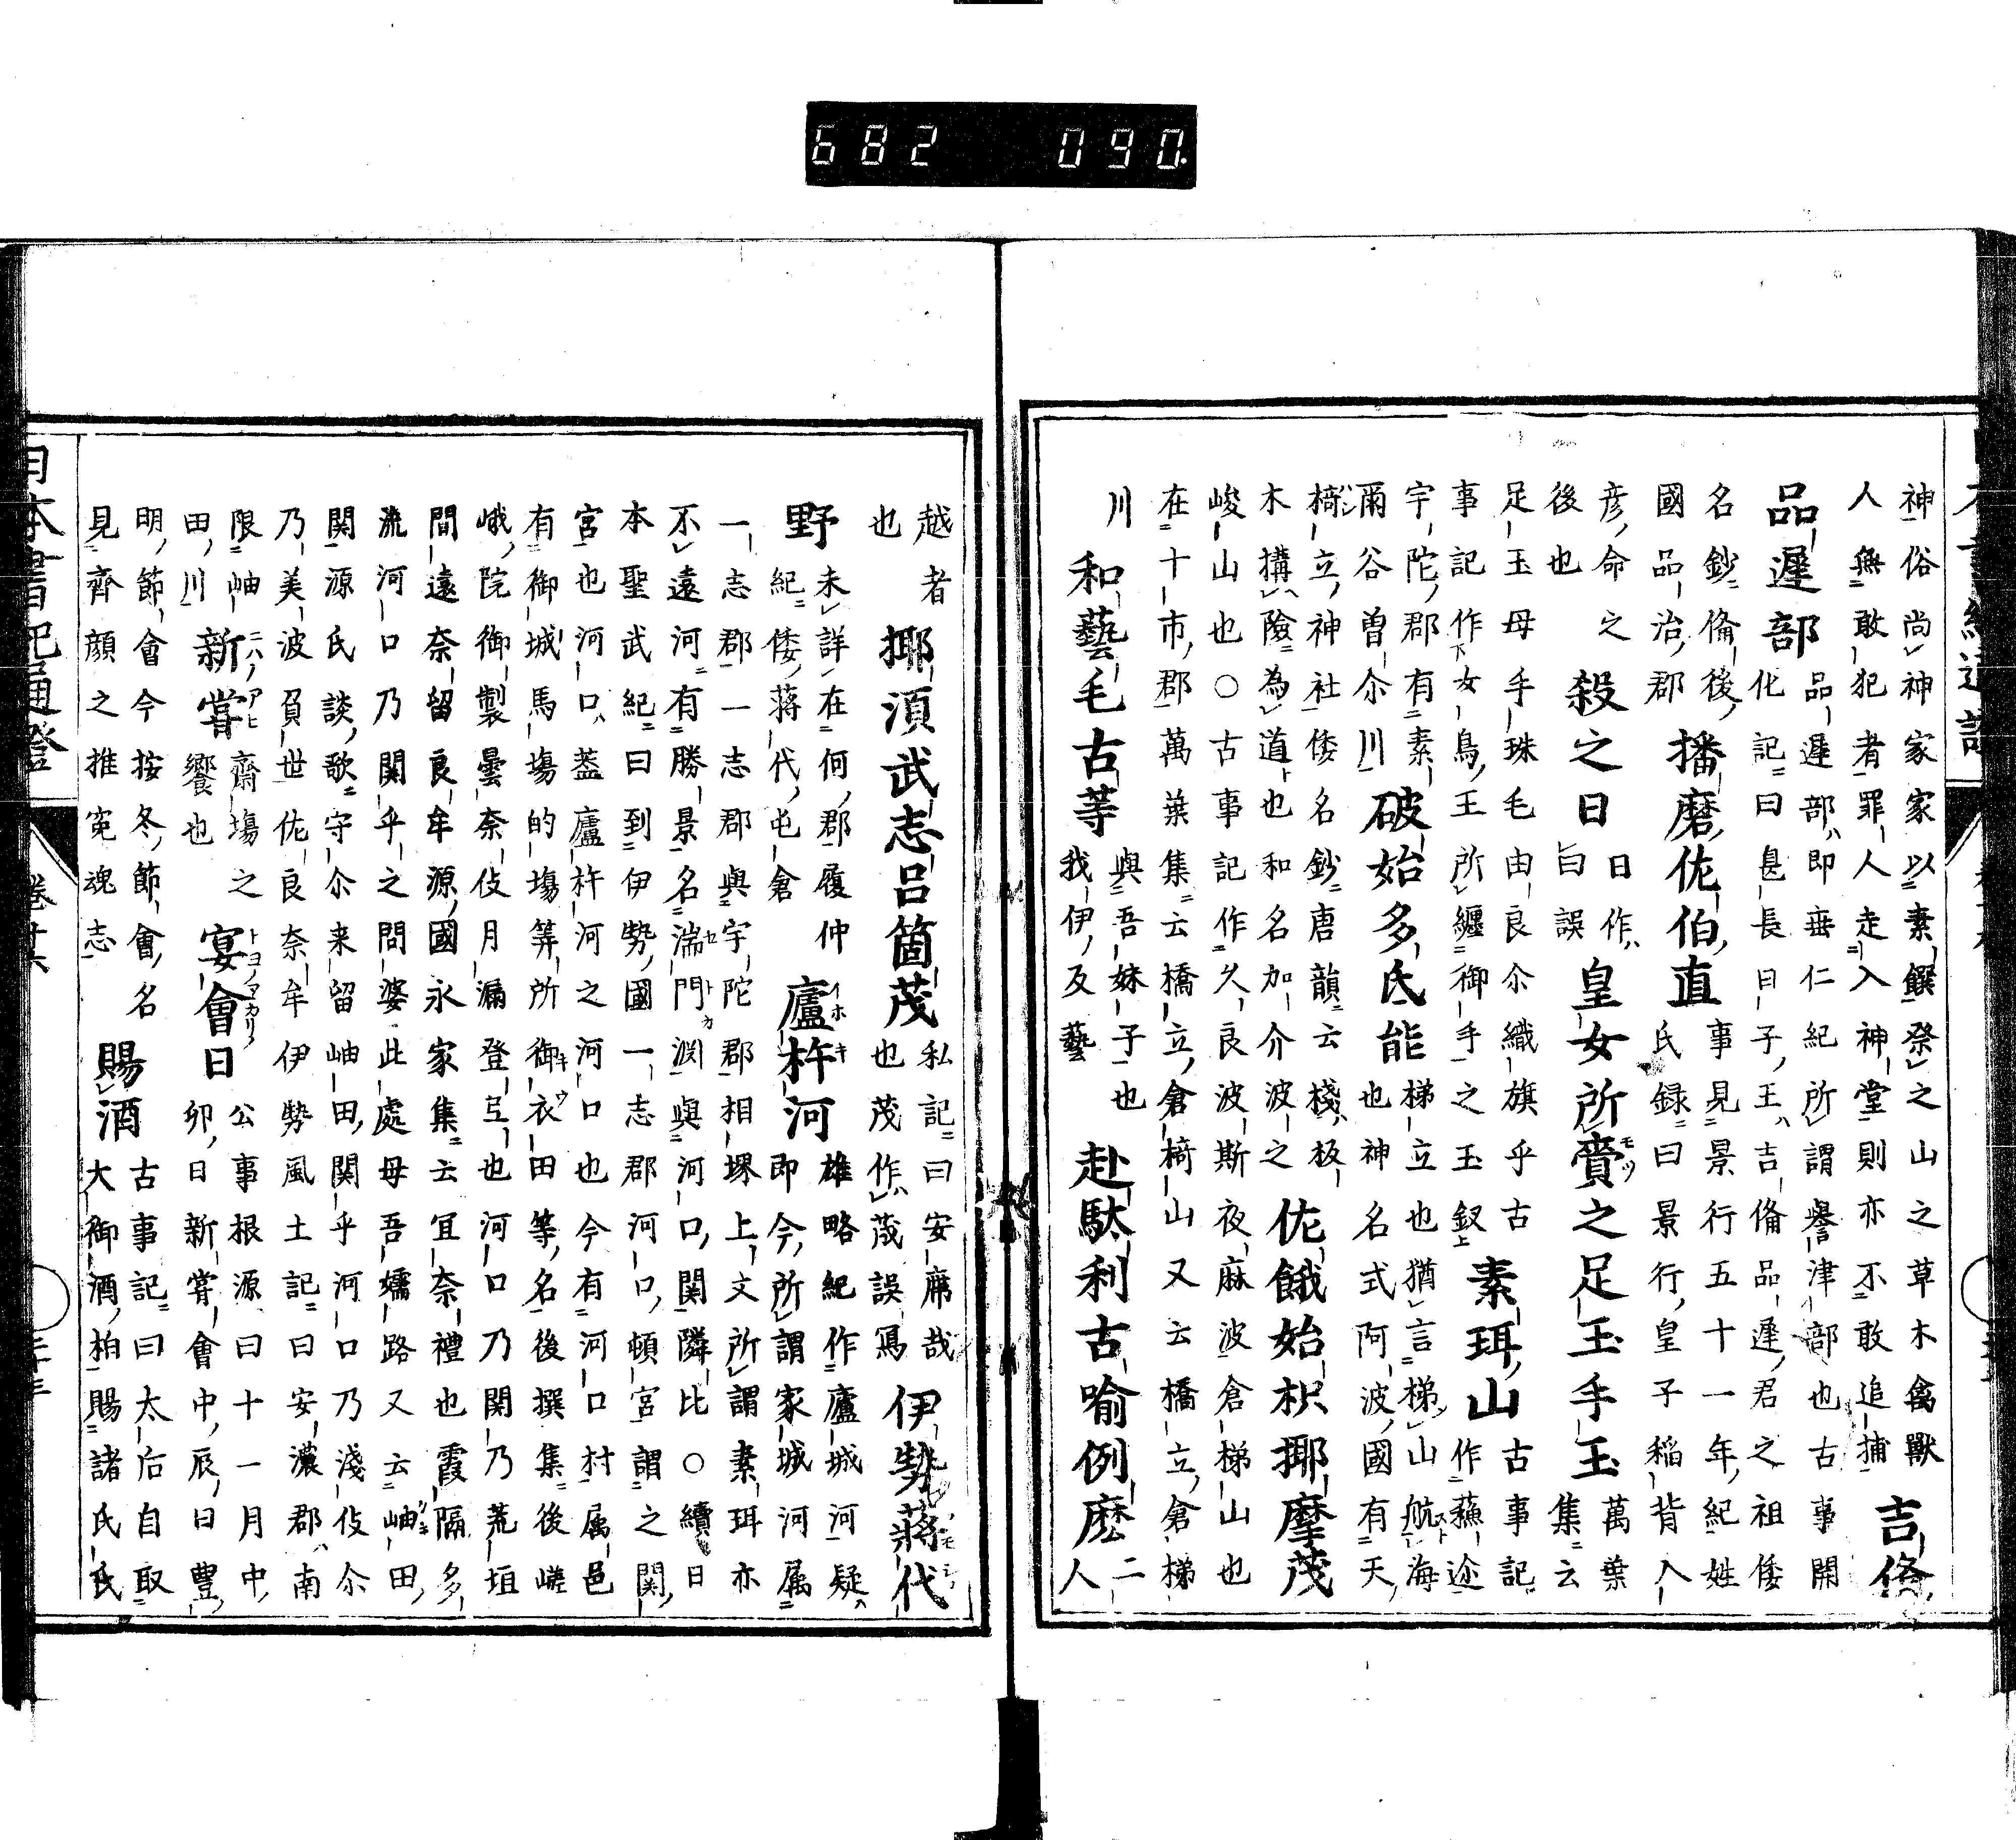 682 090
神俗尚神家家以素饌祭之山之草木禽獸
人無敢犯者罪人走入神堂則亦不敢追捕 吉俻
品遲部 品遲部即垂仁紀所謂譽津部也古事
化記曰息長日子王吉俻品遲君之祖倭
名鈔俻後 國品治郡 播磨佐伯直 事見景行五十一年紀姓
氏録曰景行皇子稲背入
彦命之 後也 殺之日 日作 曰誤 皇女所賷之足玉手玉 萬葉
集云
足玉母手珠毛由良尒織旗乎古
事記作女鳥王所纏御手之玉釼 素珥山 古事記
作蘓
宇陀郡有素 爾谷曽尒川 破始多氐能 梯立也猶言梯山航海
也神名式阿波國有天
椅立神社倭名鈔唐韻云棧板
木搆險為道也和名加介波之 佐餓始枳揶摩茂
峻山也○古事記作久良波斯夜麻波倉梯山也
在十市郡萬葉集云橋立倉椅山又云橋立倉梯
川 和藝毛古等 與吾妹子也
我伊反藝 赴駄利古喻例麽 二
人
越者
也 揶須武志呂箇茂 私記曰安席哉
也茂作茂誤寫 伊勢蔣代
野 未詳在何郡履仲
紀倭蔣代屯倉 廬杵河 雄略紀作廬城河疑
即今所謂家城河属
一志郡一志郡與宇陀郡相堺上文所謂素珥亦
不遠河有勝景名湍門淵與河口関隣比○續日
本聖武紀曰到伊勢國一志郡河口頓宮謂之関
宮也河口盖廬杵河之河口也今有河口村属邑
有御城馬塲的塲等所御衣田等名後撰集後嵯
峨院御製曇奈伎月漏登弖也河口乃関乃荒垣
間遠奈留良牟源國永家集云冝奈禮也霞隔多
流河口乃関乎之問婆此處母吾嬬路又云岫田
関源氏談歌守尒来留岫田関乎河口乃淺伎尒
乃美波負世佐良奈牟伊勢風土記曰安濃郡南
限岫田川 新甞 齋塲之
饗也 宴會日 公事根源曰十一月中
卯日新甞會中辰日豐
明節會今按冬節會名
見齊顔之推寃魂志 賜酒 古事記曰太后自取
大御酒柏賜諸氏氏
日本書紀通證 卷十六